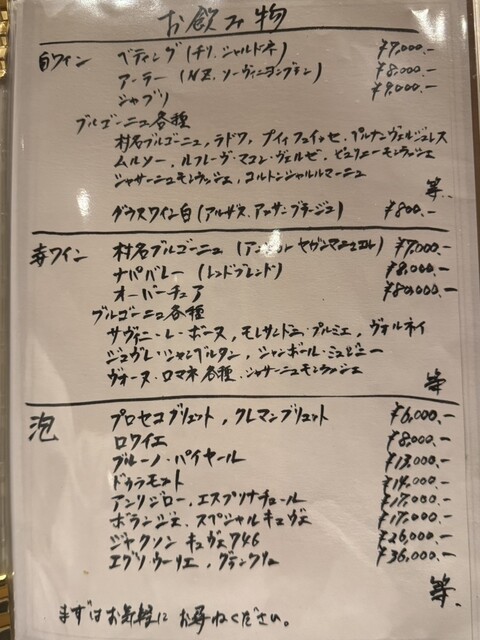 お飲み物
白ワイン ベティング (チリ、シャルドネ ¥7,000.-
アーラー (NZ. ソーヴィニヨンブラン) ¥8,000.-
シャブリ ¥9,000.-
ブルゴーニュ各種
村名ブルゴーニュ, ラドワ, プイィフュイッセ,
ムルソー, ルフレーヴ・マコン・ヴェルゼ, ピュリニーモンラッシェ
シャサーニュモンラッシェ, コルトンシャルルマーニュ
等.
グラスワイン白 (アルザス. アッサンブラージュ) ¥800.-
赤ワイン 村名ブルゴーニュ ¥7,000.-
ナパバレー (レッドブレンド) ¥8,000.-
オーバーチュア
ブルゴーニュ各種
サヴィニー・レ・ボーヌ, モレサンドニ・プルミエ, ヴォルネイ
ジュヴレ・シャンベルタン, シャンボール・ミュジニー
ヴォーヌ・ロマネ各種・シャサーニュモンラッシェ
等
泡 プロセコブリュット, クレマンブリュット ¥6,000.-
ロワイエ ¥8,000.-
ブルーノ・パイヤール ¥13,000.-
ドゥラモット ¥14,000.-
アンリジロー, エスプリナチュール ¥17,000.-
ボランジェ. スペシャルキュヴェ ¥17,000.-
ジャクソン キュヴェ746 ¥26,000.-
エグリ・ウーリエ, グランクリュ ¥36,000.-
等.
まずはお気軽に お尋ねください。